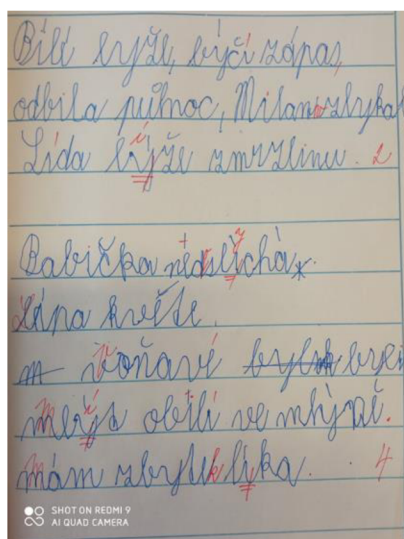 Bílé lyže, býčí zápas,
odbila půlnoc, Milan zbyka
Lída lýže zmrzlinu. 2
Babička nedslíchá.
Lípa květe.
voňavé byli
melýs obilí ve mlýně.
mám zbytek lika. 4
SHOT ON REDMI 9
AI QUAD CAMERA